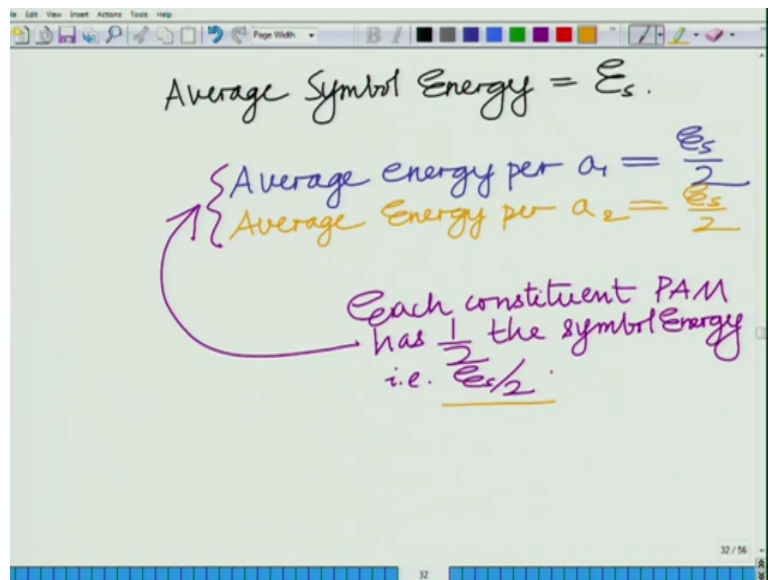 File Edit View Insert Actions Tools Help
Page Width
Average Symbol Energy = Es.
Average energy per a1 = Es/2
Average Energy per a2 = Es/2
Each constituent PAM
has 1/2 the symbol Energy
i.e. Es/2.
32 / 56
32